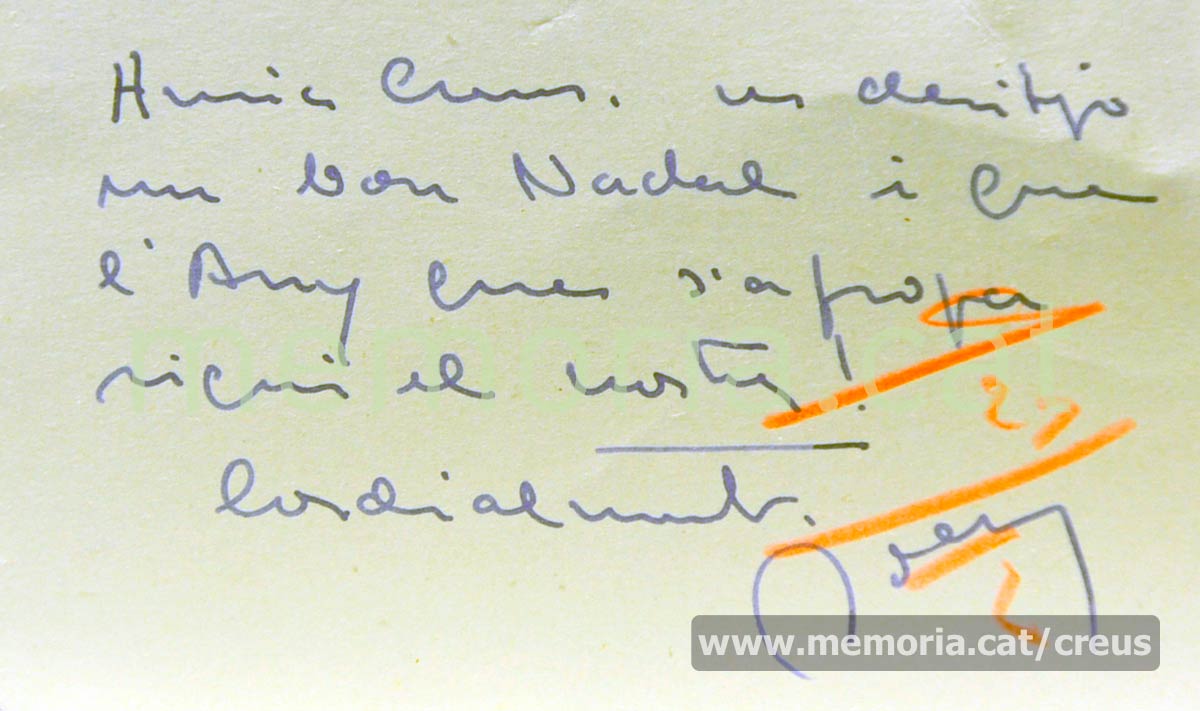 Amic Creus. us desitjo
un bon Nadal i que
l'Any que s'apropa
sigui el nostre!
Cordialment.
memoria.cat
www.memoria.cat/creus